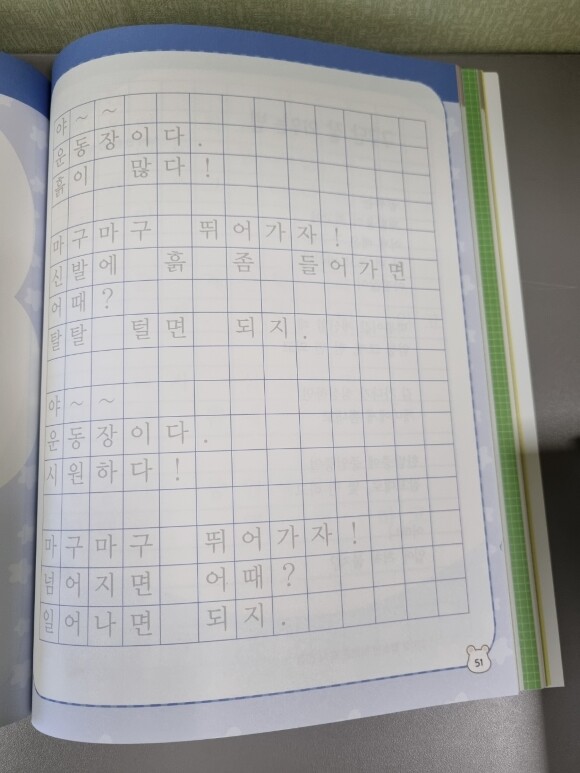 야~~
운동장이다.
흙이 많다!
마구마구 뛰어가자!
신발에 흙 좀 들어가면
어때?
탈탈 털면 되지.
야~~
운동장이다.
시원하다!
마구마구 뛰어가자!
넘어지면 어때?
일어나면 되지.
51